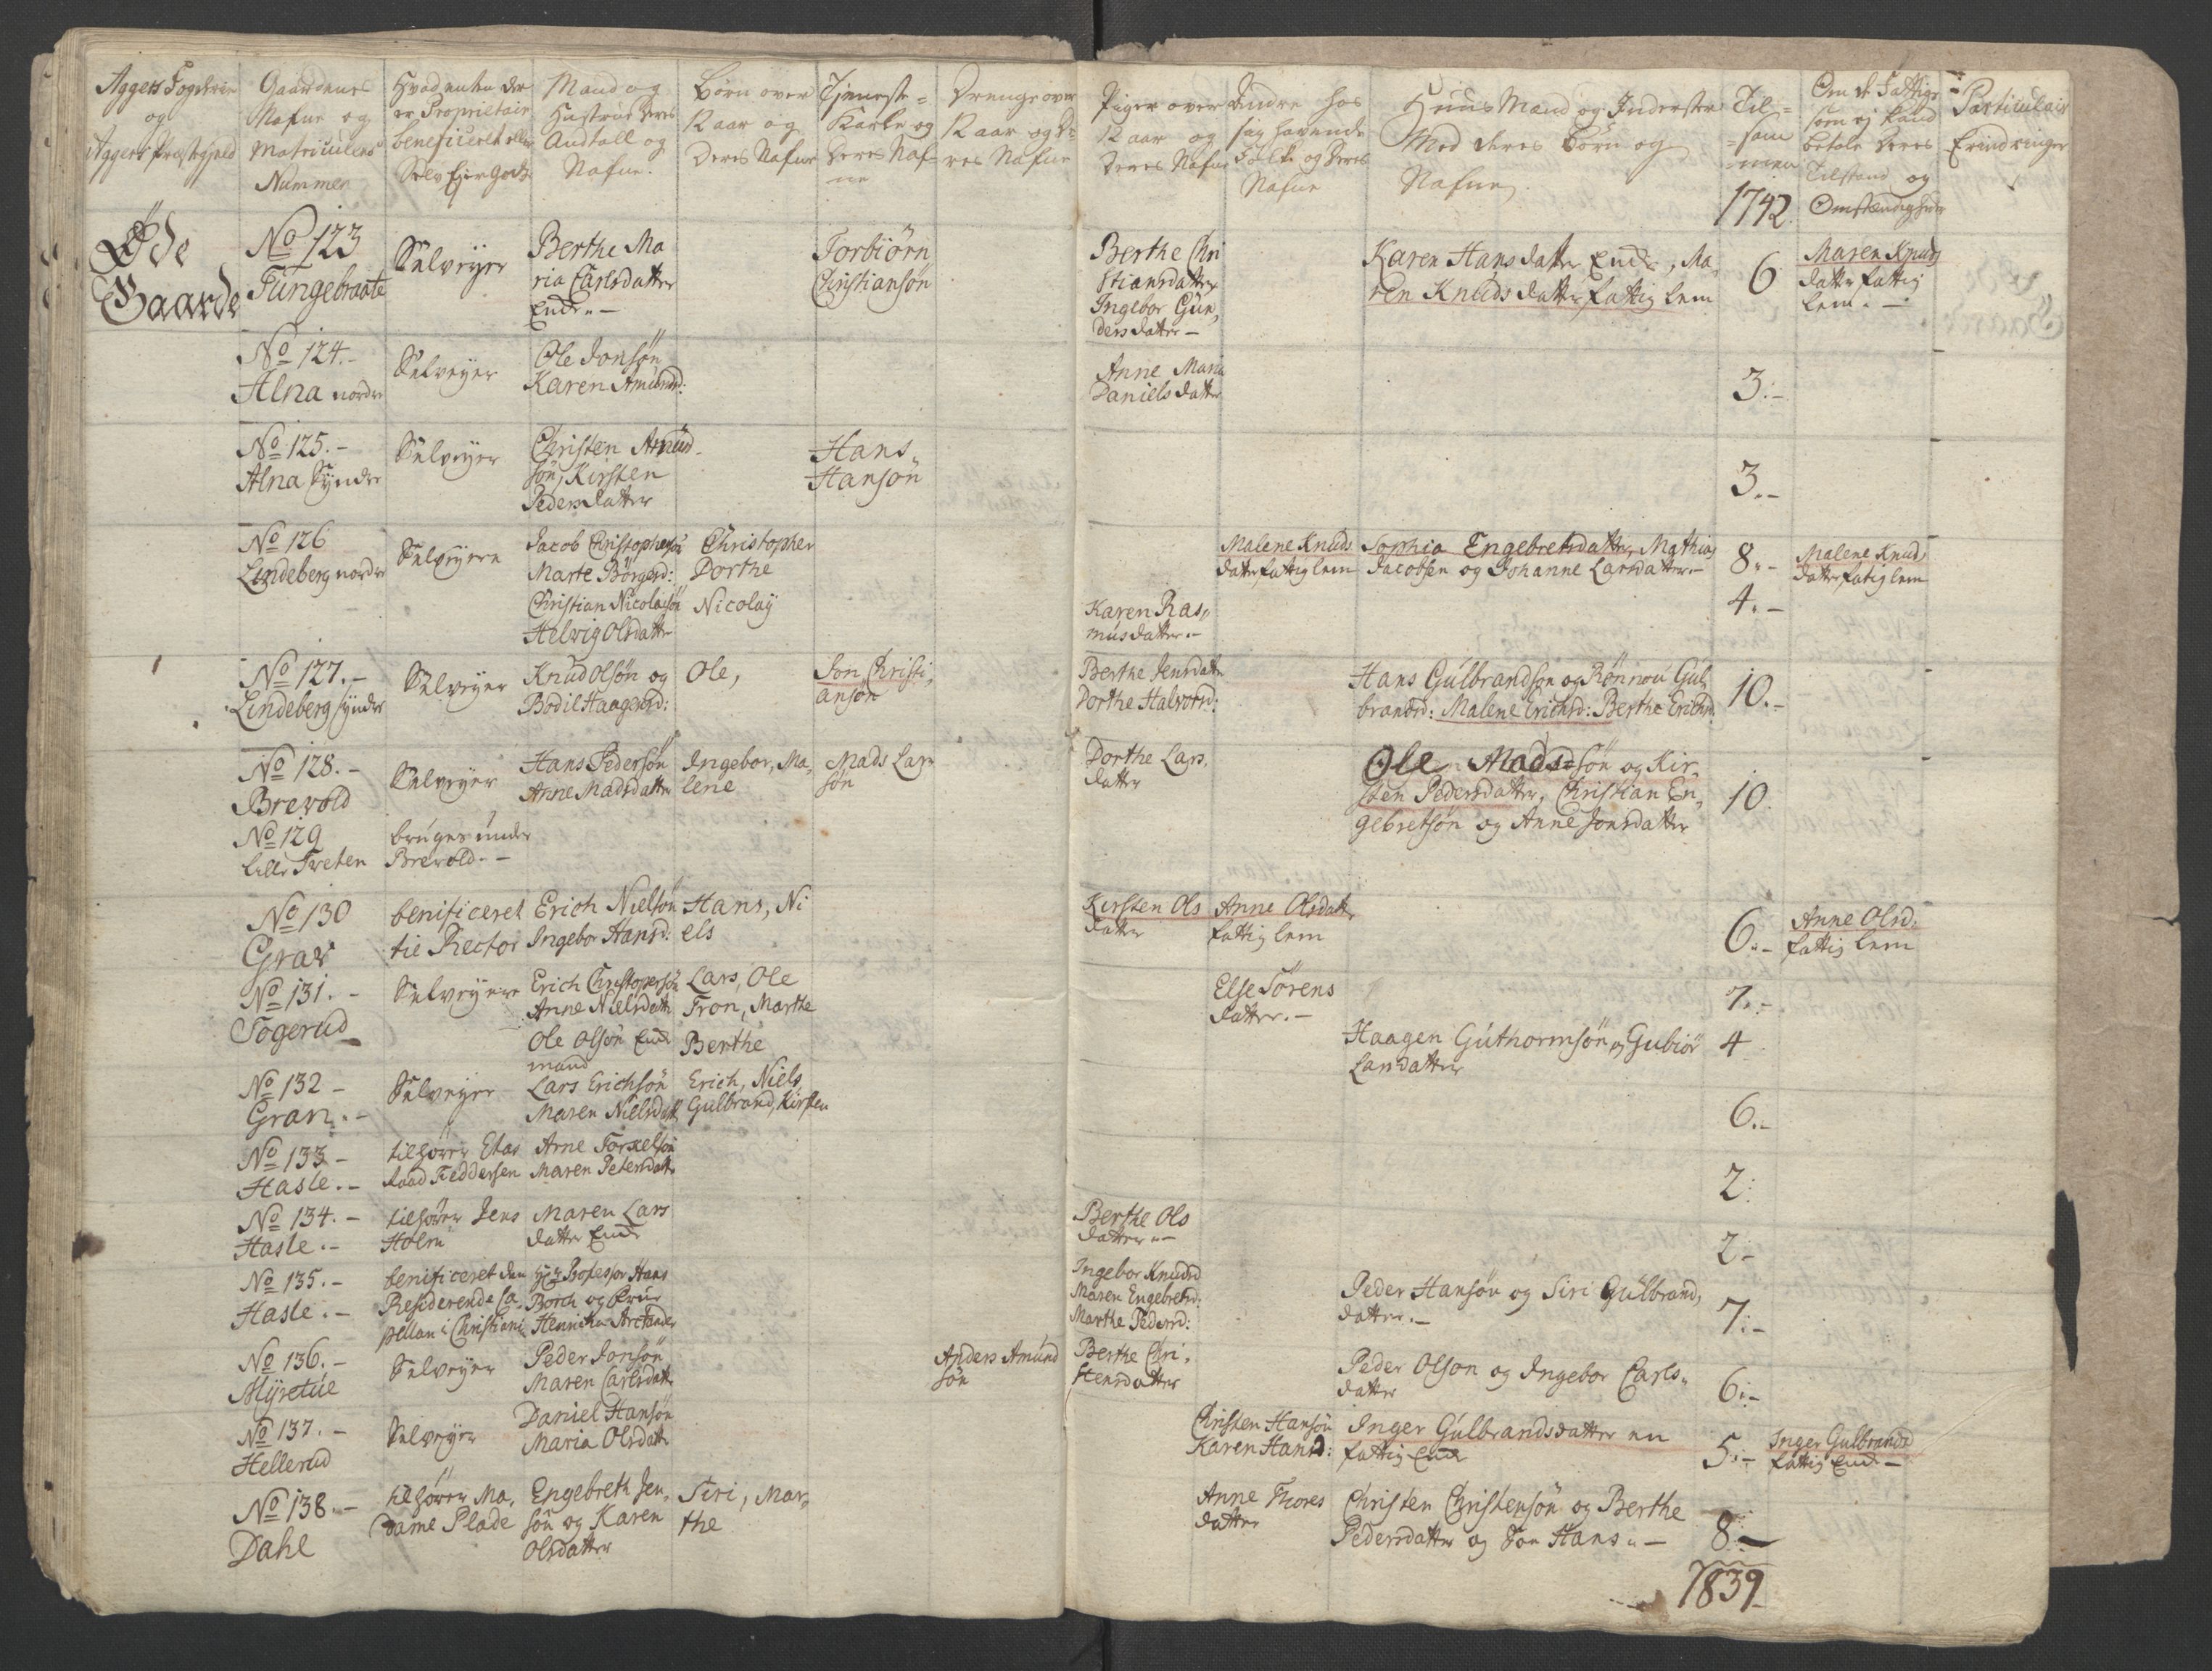 Aggers Fogderie
og
Aggers Præstegield
Gaardenes
Nafne og
Matriculens
Nummer
Hvad enten der
er Proprietair
beneficeret eller
Selv Ejer Gods
Mand og
Hustrue deres
Andtall og
Nafne.
Børn over
12 aar og
Deres Nafne
Tjeneste-
Karle og
deres Naf-
ne
Drenge over
12 aar og De-
res Nafne
Piger over
12 aar og
deres Nafne
Andre hos
sig havende
Folk og deres
Nafne
Huus Mænd og Inderster
Med deres Børn og
Nafne.
Til-
sam
men
Om de Fattige
som ej kand
betale deres
Tilstand og
Omstændigheder
Particulair
Erindringer
1742.
Øde
Gaarde
No 123
Tungebraate
Selveyer
Berthe Ma
ria Carlsdatter
Enke.-
Torbiörn
Christiansön
Berthe Chri
stiansdatter
Ingebor Gun,
dersdatter-
Karen Hansdatter Enke, Ma,
ren Knudsdatter fattig lem
6
Maren Knuds
datter fattig
lem.-
No 124.-
Alna nordre
Selveyer
Ole Jonsön
Karen Amundsd:
Anne Maria
Danielsdatter
3.-
No 125.-
Alna Syndre
Selveyer
Christen Amund
sön, Kirsten
Pedersdatter
Hans
Hansön
3.-
No 126
Lindeberg nordre
Selveyere
Jacob Christophersön
Marte Börgerd:
Christian Nicolaisön
Helwig Olsdatter
Christopher
Dorthe
Nicolaÿ
Karen Ras,
musdatter.-
Malene Knuds
datter fattig lem
Sophia Engebretsdatter, Mathias
Jacobsen og Johanne Larsdatter.-
8.-
4.-
Malene Knuds
datter fatig lem
No 127.-
Lindeberg syndre
Selveyer
Knud Olsön og
Bodil Haagensd:
Ole,
Jon Christi,
ansön
Berthe Jensdatter
Dorthe Halvorsd:
Hans Gulbrandsön og Rönnou Gul
brandsd: Malene Erichsd: Berthe Erichsd.
10.-
No 128.-
Brevold
Selveyer
Hans Pedersön
Anne Madsdatter
Ingebor, Ma,
lene
Mads Lar
sön
Dorthe Lars,
datter
Ole Madssön og Kir,
sten Pedersdatter, Christian En,
gebretsön og Anne Jonsdatter
10.
No 129
Lille Tveten
bruges under
Brevold.-
No 130
Grav
benificeret
til Rector
Erich Nielsön
Ingebor Hansd:
Hans, Ni
els
Kirsten Ols
datter
Anne Olsdatter
fattig lem
6.-
Anne Olsd:
fattig lem
No 131.-
Togerud
Selveyere
Erich Christopersön
Anne Nielsdatter
Ole Olsön Enke
mand
Lars, Ole
Tron, Marthe
Berthe
Else Sörens
datter.-
7.-
Haagen Guthormsön og Gubiör
Larsdatter
4
No 132-
Gran.-
Selveyer
Lars Erichsön
Maren Nielsdatter
Erich, Niels
Gulbrand, Kirsten
6.-
No 133-
Hasle.-
tilhører Etas
Raad Feddersen
Arne Torkelsön
Maren Petersdatter
2:
No 134.-
Hasle.-
tilhører Jens
Holm
Maren Lars
datter Enke
Berthe Ols
datter.-
2-
No 135.-
Hasle.-
benificeret den
Residerende Ca,
pellan i Christiania
Hr Professor Hans
Borch og Frue
Henricha Arctander
Ingebor Knudsd
Maren Engebretsd:
Marthe Pedersd:
Peder Hansön og Siri Gulbrand,
datter.-
7.-
No 136.-
Myretue
Selveyer
Peder Jonsön
Maren Carlsdatter
Anders Amund
sön
Berthe Chri,
stensdatter
Peder Olson og Ingebor Carls,
datter
6.-
No 137.-
Hellerud
Selveyer
Daniel Hansön
Maria Olsdatter
Christen Hansön
Karen Hansd:
Inger Gulbrandsdatter en
fattig Enke
5.-
Inger Gulbrandsd
fattig Enke-
No 138.-
Dahl
tilhører Ma,
dame Plade
Engebreth Jen,
sön og Karen
Olsdatter
Siri, Mar,
the
Anne Thores
datter
Christen Christensön og Berthe
Pedersdatter og Son Hans.-
8.-
1839